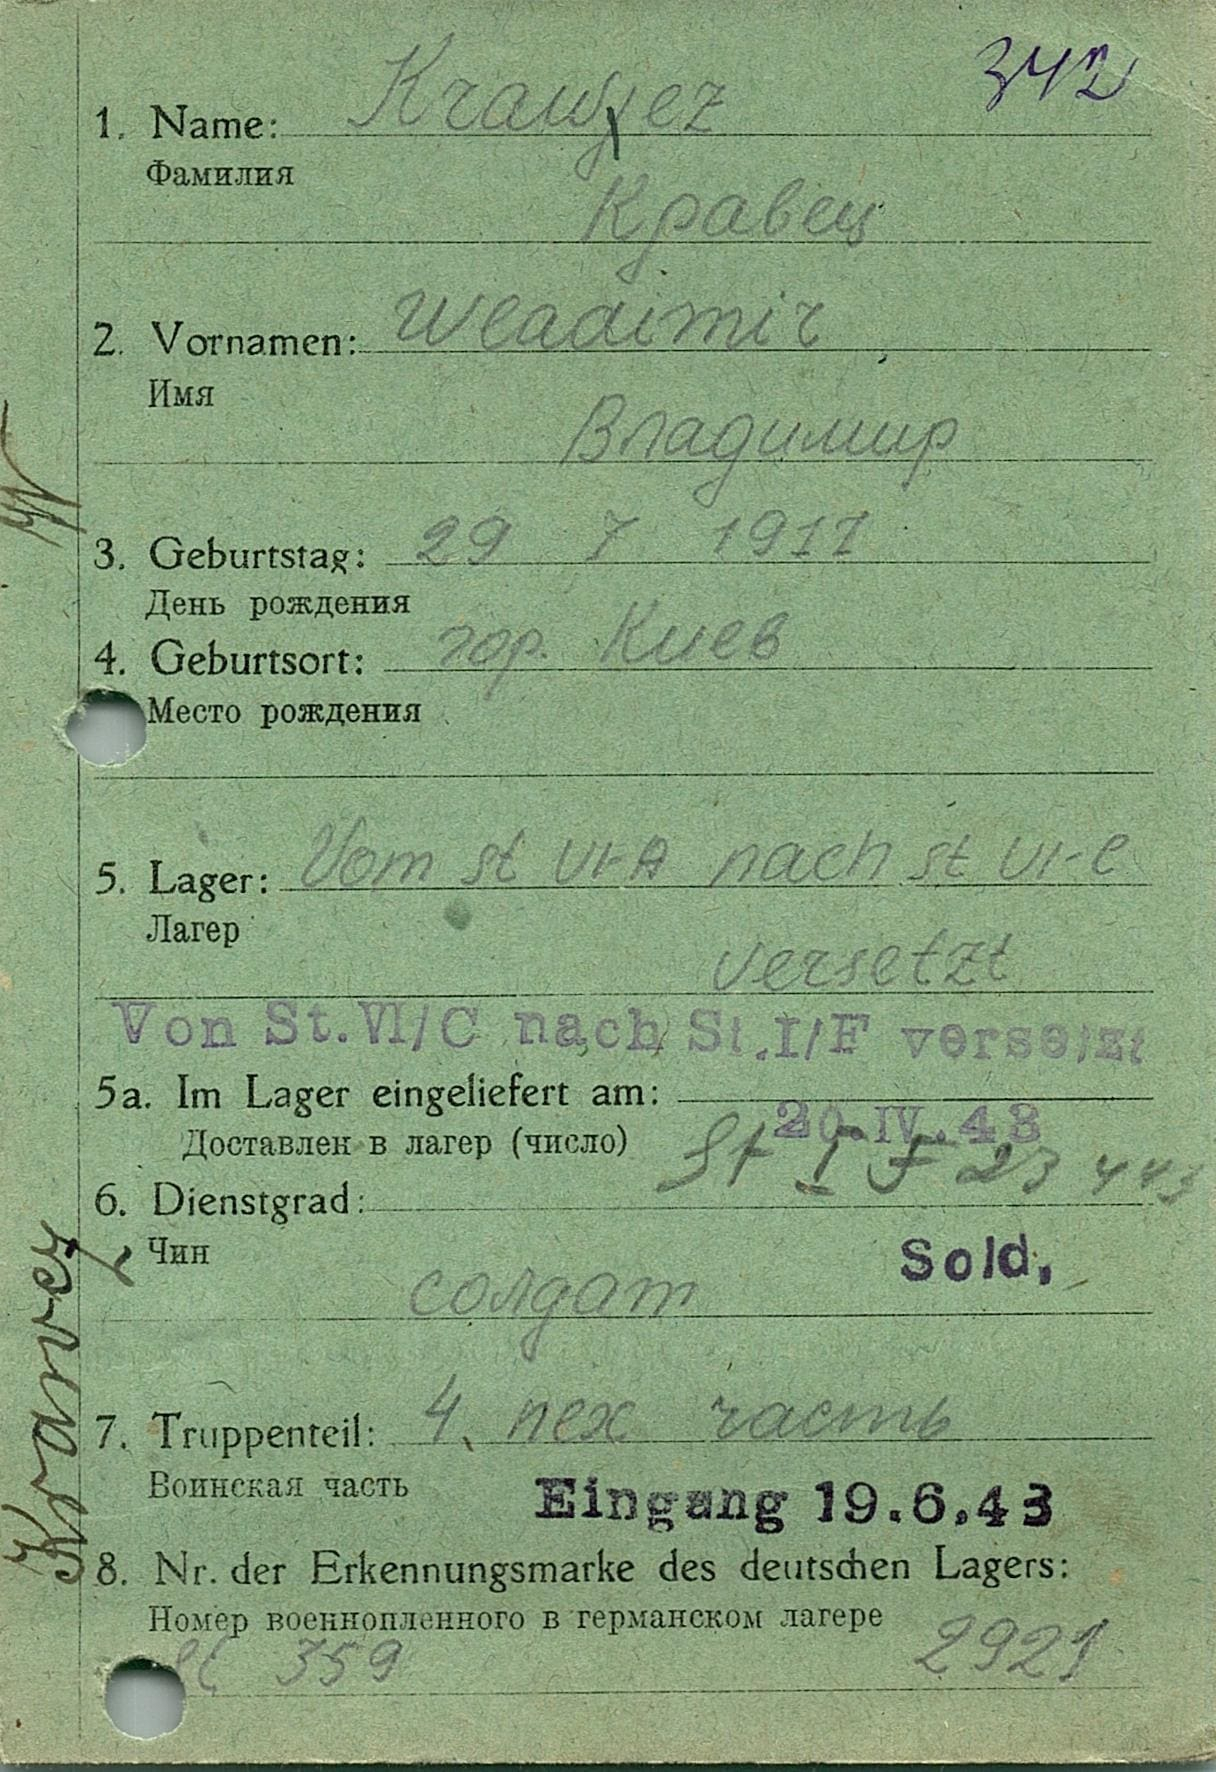 342
1. Name: Krawez
Фамилия
Кравец
2. Vornamen: Wladimir
Имя
Владимир
3. Geburtstag: 29 7 1911
День рождения
4. Geburtsort: гор. Киев
Место рождения
5. Lager: Vom st VI-A nach st VI-C
Лагер
versetzt
Von St.VI/C nach St.I/F versetzt
5a. Im Lager eingeliefert am:
20.IV.43
Доставлен в лагер (число)
St I F 23 443
6. Dienstgrad:
Чин
Sold.
солдат
7. Truppenteil: 4. пех часть
Воинская часть
Eingang 19.6.43
8. Nr. der Erkennungsmarke des deutschen Lagers:
Номер военнопленного в германском лагере
359 2921
Kravez